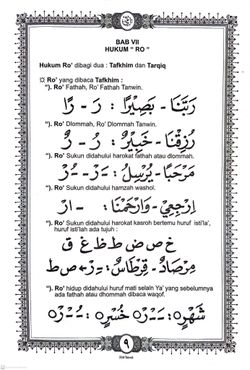 BAB VII
HUKUM " RO "
Hukum Ro' dibagi dua : Tafkhim dan Tarqiq
Ro' yang dibaca Tafkhim :
*). Ro' Fathah, Ro' Fathah Tanwin.
رَبَّنَا - بَصِيْرًا : رَ - رًا
*). Ro' Dlommah, Ro' Dlommah Tanwin.
رُزِقْنَا - خَبِيْرٌ : رُ - رٌ
*). Ro' Sukun didahului harokat fathah atau dlommah.
مَرْحَبًا - يُرْسِلُ : ـَرْ - ـُرْ
*). Ro' Sukun didahului hamzah washol.
اِرْجِعِيْ - وَارْحَمْنَا : - ارْ
*). Ro' Sukun didahului harokat kasroh bertemu huruf isti'la',
huruf isti'la' ada tujuh :
خ ص ض ط ظ غ ق
مِرْصَادٌ - قِرْطَاسٌ : ـِرْ ← ص ط
*). Ro' hidup didahului huruf mati selain Ya' yang sebelumnya
ada fathah atau dhommah dibaca waqof.
٩